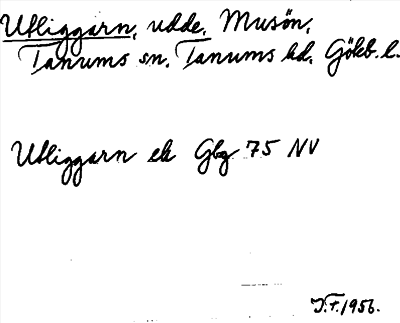 Utliggarn, udde, Musön,
Tanums sn. Tanums hd. Göteb. l.
Utliggarn ek Gbg 75 NV
J.F. 1956.